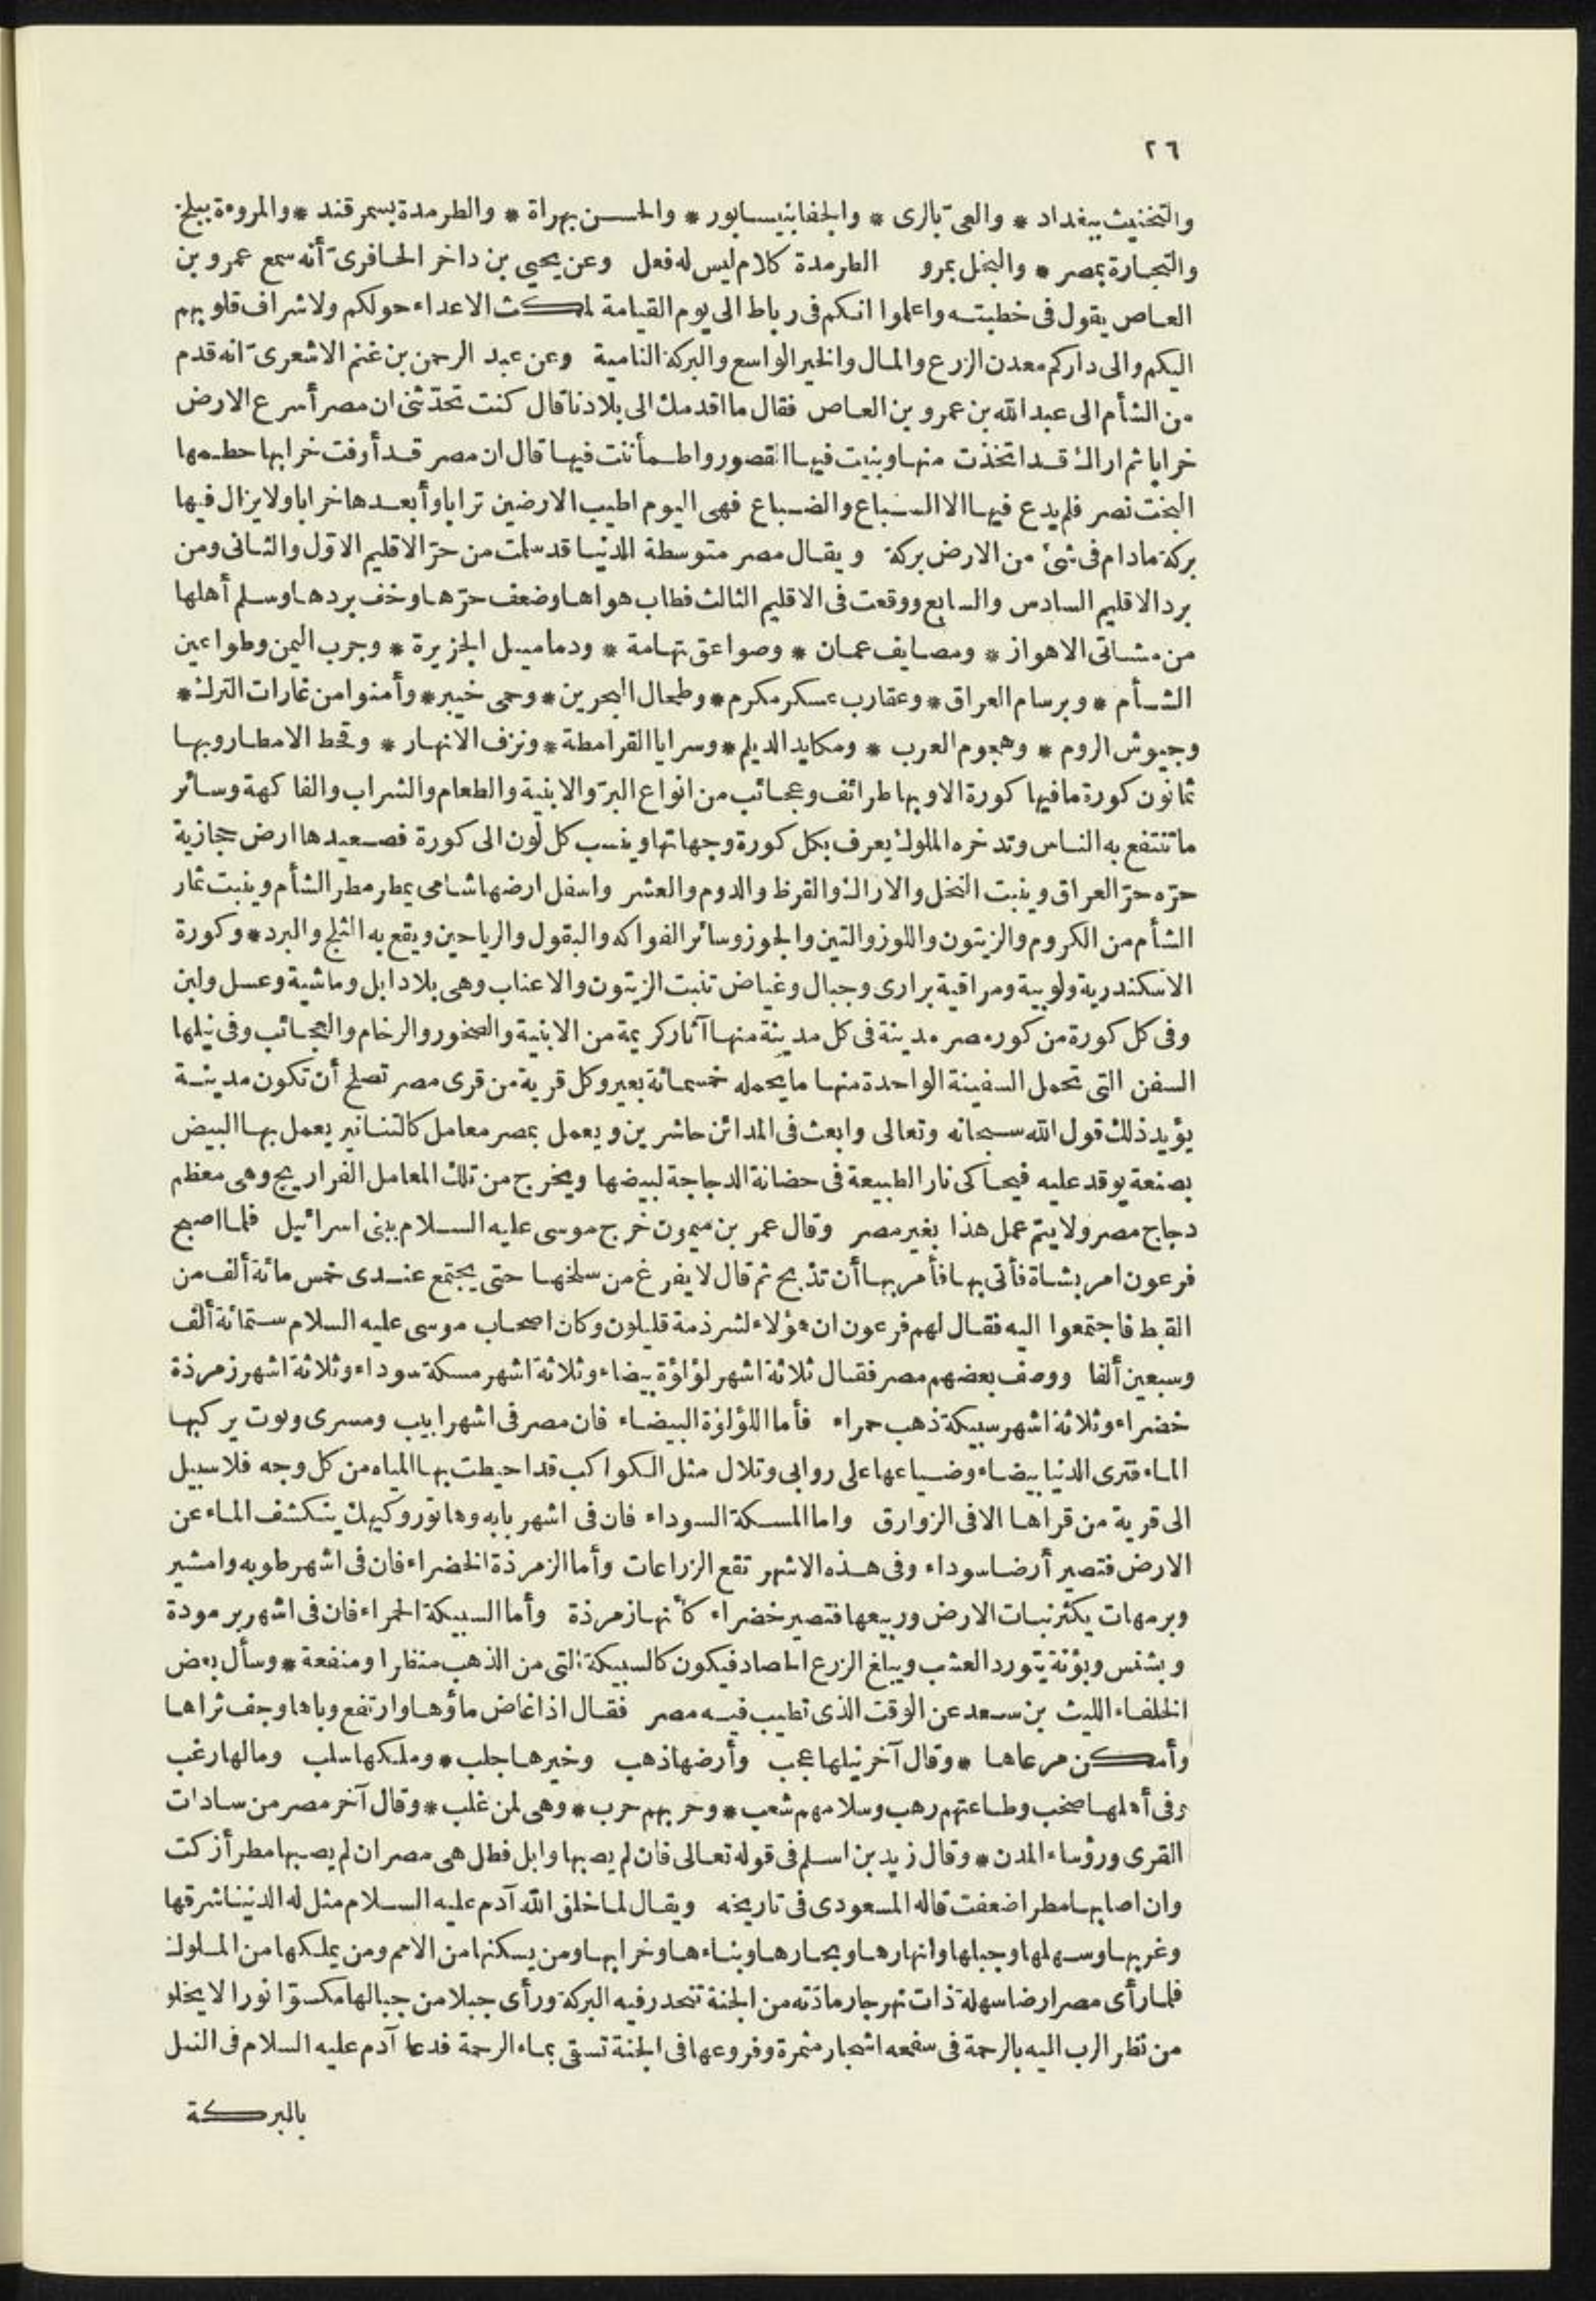 ٢٦
والتخنيث ببغداد * والعىّ بالرى * والجفا بنيسابور * والحسن بهراة * والطرمدة بسمرقند * والمروءة ببلخ
والتجارة بمصر * والبخل بمرو الطرمدة كلام ليس له فعل وعن يحيى بن داخر الحافرىّ أنه سمع عمرو بن
العاص يقول فى خطبته واعلموا انكم فى رباط الى يوم القيامة لكث الاعداء حولكم ولاشراف قلوبهم
اليكم والى داركم معدن الزرع والمال والخير الواسع والبركة النامية وعن عبد الرحمن بن غنم الاشعرىّ انه قدم
من الشأم الى عبد الله بن عمرو بن العاص فقال ما اقدمك الى بلادنا قال كنت تحدّثنى ان مصر أسرع الارض
خرابا ثم اراك قد اتخذت منها وبنيت فيها القصور واطمأننت فيها قال ان مصر قد أوفت خرابها حطمها
البخت نصر فلم يدع فيها الا السباع والضباع فهى اليوم اطيب الارضين ترابا وأبعدها خرابا ولا يزال فيها
بركة ما دام فى شئ من الارض بركة ويقال مصر متوسطة الدنيا قد سلمت من حرّ الاقليم الاوّل والثانى ومن
برد الاقليم السادس والسابع ووقعت فى الاقليم الثالث فطاب هواها وضعف حرّها وخف بردها وسلم أهلها
من مشاتى الاهواز * ومصايف عمان * وصواعق تهامة * ودماميل الجزيرة * وجرب اليمن وطواعين
الشأم * وبرسام العراق * وعقارب عسكر مكرم * وطحال البحرين * وحمى خيبر * وأمنوا من غارات الترك *
وجيوش الروم * وهجوم العرب * ومكايد الديلم * وسرايا القرامطة * ونزف الانهار * وقحط الامطار وبها
ثمانون كورة ما فيها كورة الا وبها طرائف وعجائب من انواع البرّ والابنية والطعام والشراب والفاكهة وسائر
ما تنتفع به الناس وتدخره الملوك يعرف بكل كورة وجهاتها وينسب كل لون الى كورة فصعيدها ارض حجازية
حرّه حرّ العراق وينبت النخل والاراك والقرظ والدوم والعشر واسفل ارضها شامى يمطر مطر الشأم وينبت ثمار
الشأم من الكروم والزيتون واللوز والتين والجوز وسائر الفواكه والبقول والرياحين ويقع به الثلج والبرد * وكورة
الاسكندرية ولوبية ومراقية برارى وجبال وغياض تنبت الزيتون والاعناب وهى بلاد ابل وماشية وعسل ولبن
وفى كل كورة من كور مصر مدينة فى كل مدينة منها آثار كريمة من الابنية والصخور والرخام والعجائب وفى نيلها
السفن التى تحمل السفينة الواحدة منها ما يحمله خمسمائة بعير وكل قرية من قرى مصر تصلح أن تكون مدينة
يؤيد ذلك قول الله سبحانه وتعالى وابعث فى المدائن حاشرين ويعمل بمصر معامل كالتنانير يعمل بها البيض
بصنعة يوقد عليه فيحاكى نار الطبيعة فى حضانة الدجاجة لبيضها ويخرج من تلك المعامل الفراريج وهى معظم
دجاج مصر ولا يتم عمل هذا بغير مصر وقال عمر بن ميمون خرج موسى عليه السلام ببنى اسرائيل فلما اصبح
فرعون امر بشاة فأتى بها فأمر بها أن تذبح ثم قال لا يفرغ من سلخها حتى يجتمع عندى خمس مائة ألف من
القبط فاجتمعوا اليه فقال لهم فرعون ان هؤلاء لشرذمة قليلون وكان اصحاب موسى عليه السلام ستمائة ألف
وسبعين ألفا ووصف بعضهم مصر فقال ثلاثة اشهر لؤلؤة بيضاء وثلاثة اشهر مسكة سوداء وثلاثة اشهر زمرذة
خضراء وثلاثة اشهر سبيكة ذهب حمراء فأما اللؤلؤة البيضاء فان مصر فى اشهر ابيب ومسرى وتوت يركبها
الماء فترى الدنيا بيضاء وضياعها على روابى وتلال مثل الكواكب قد احيطت بها المياه من كل وجه فلا سبيل
الى قرية من قراها الا فى الزوارق واما المسكة السوداء فان فى اشهر بابه وهاتور وكيهك ينكشف الماء عن
الارض فتصير أرضا سوداء وفى هذه الاشهر تقع الزراعات وأما الزمرذة الخضراء فان فى اشهر طوبه وامشير
وبرمهات يكثر نبات الارض وربيعها فتصير خضراء كأنها زمرذة وأما السبيكة الحمراء فان فى اشهر برمودة
وبشنس وبؤنة يتورد العشب ويبلغ الزرع الحصاد فيكون كالسبيكة التى من الذهب منظرا ومنفعة * وسأل بعض
الخلفاء الليث بن سعد عن الوقت الذى تطيب فيه مصر فقال اذا غاض ماؤها وارتفع وباها وجف ثراها
وأمكن مرعاها * وقال آخر نيلها عجب وأرضها ذهب وخيرها جلب * وملكها سلب ومالها رغب
وفى أهلها صخب وطاعتهم رهب وسلامهم شعب * وحربهم حرب * وهى لمن غلب * وقال آخر مصر من سادات
القرى ورؤساء المدن * وقال زيد بن اسلم فى قوله تعالى فان لم يصبها وابل فطل هى مصر ان لم يصبها مطر أزكت
وان اصابها مطر اضعفت قاله المسعودى فى تاريخه ويقال لما خلق الله آدم عليه السلام مثل له الدنيا شرقها
وغربها وسهلها وجبلها وانهارها وبحارها وبناءها وخرابها ومن يسكنها من الامم ومن يملكها من الملوك
فلما رأى مصر ارضا سهلة ذات نهر جار مادّته من الجنة تنحدر فيه البركة ورأى جبلا من جبالها مكسوّا نورا لا يخلو
من نظر الرب اليه بالرحمة فى سفحه اشجار مثمرة وفروعها فى الجنة تسقى بماء الرحمة فدعا آدم عليه السلام فى النيل
بالبركة